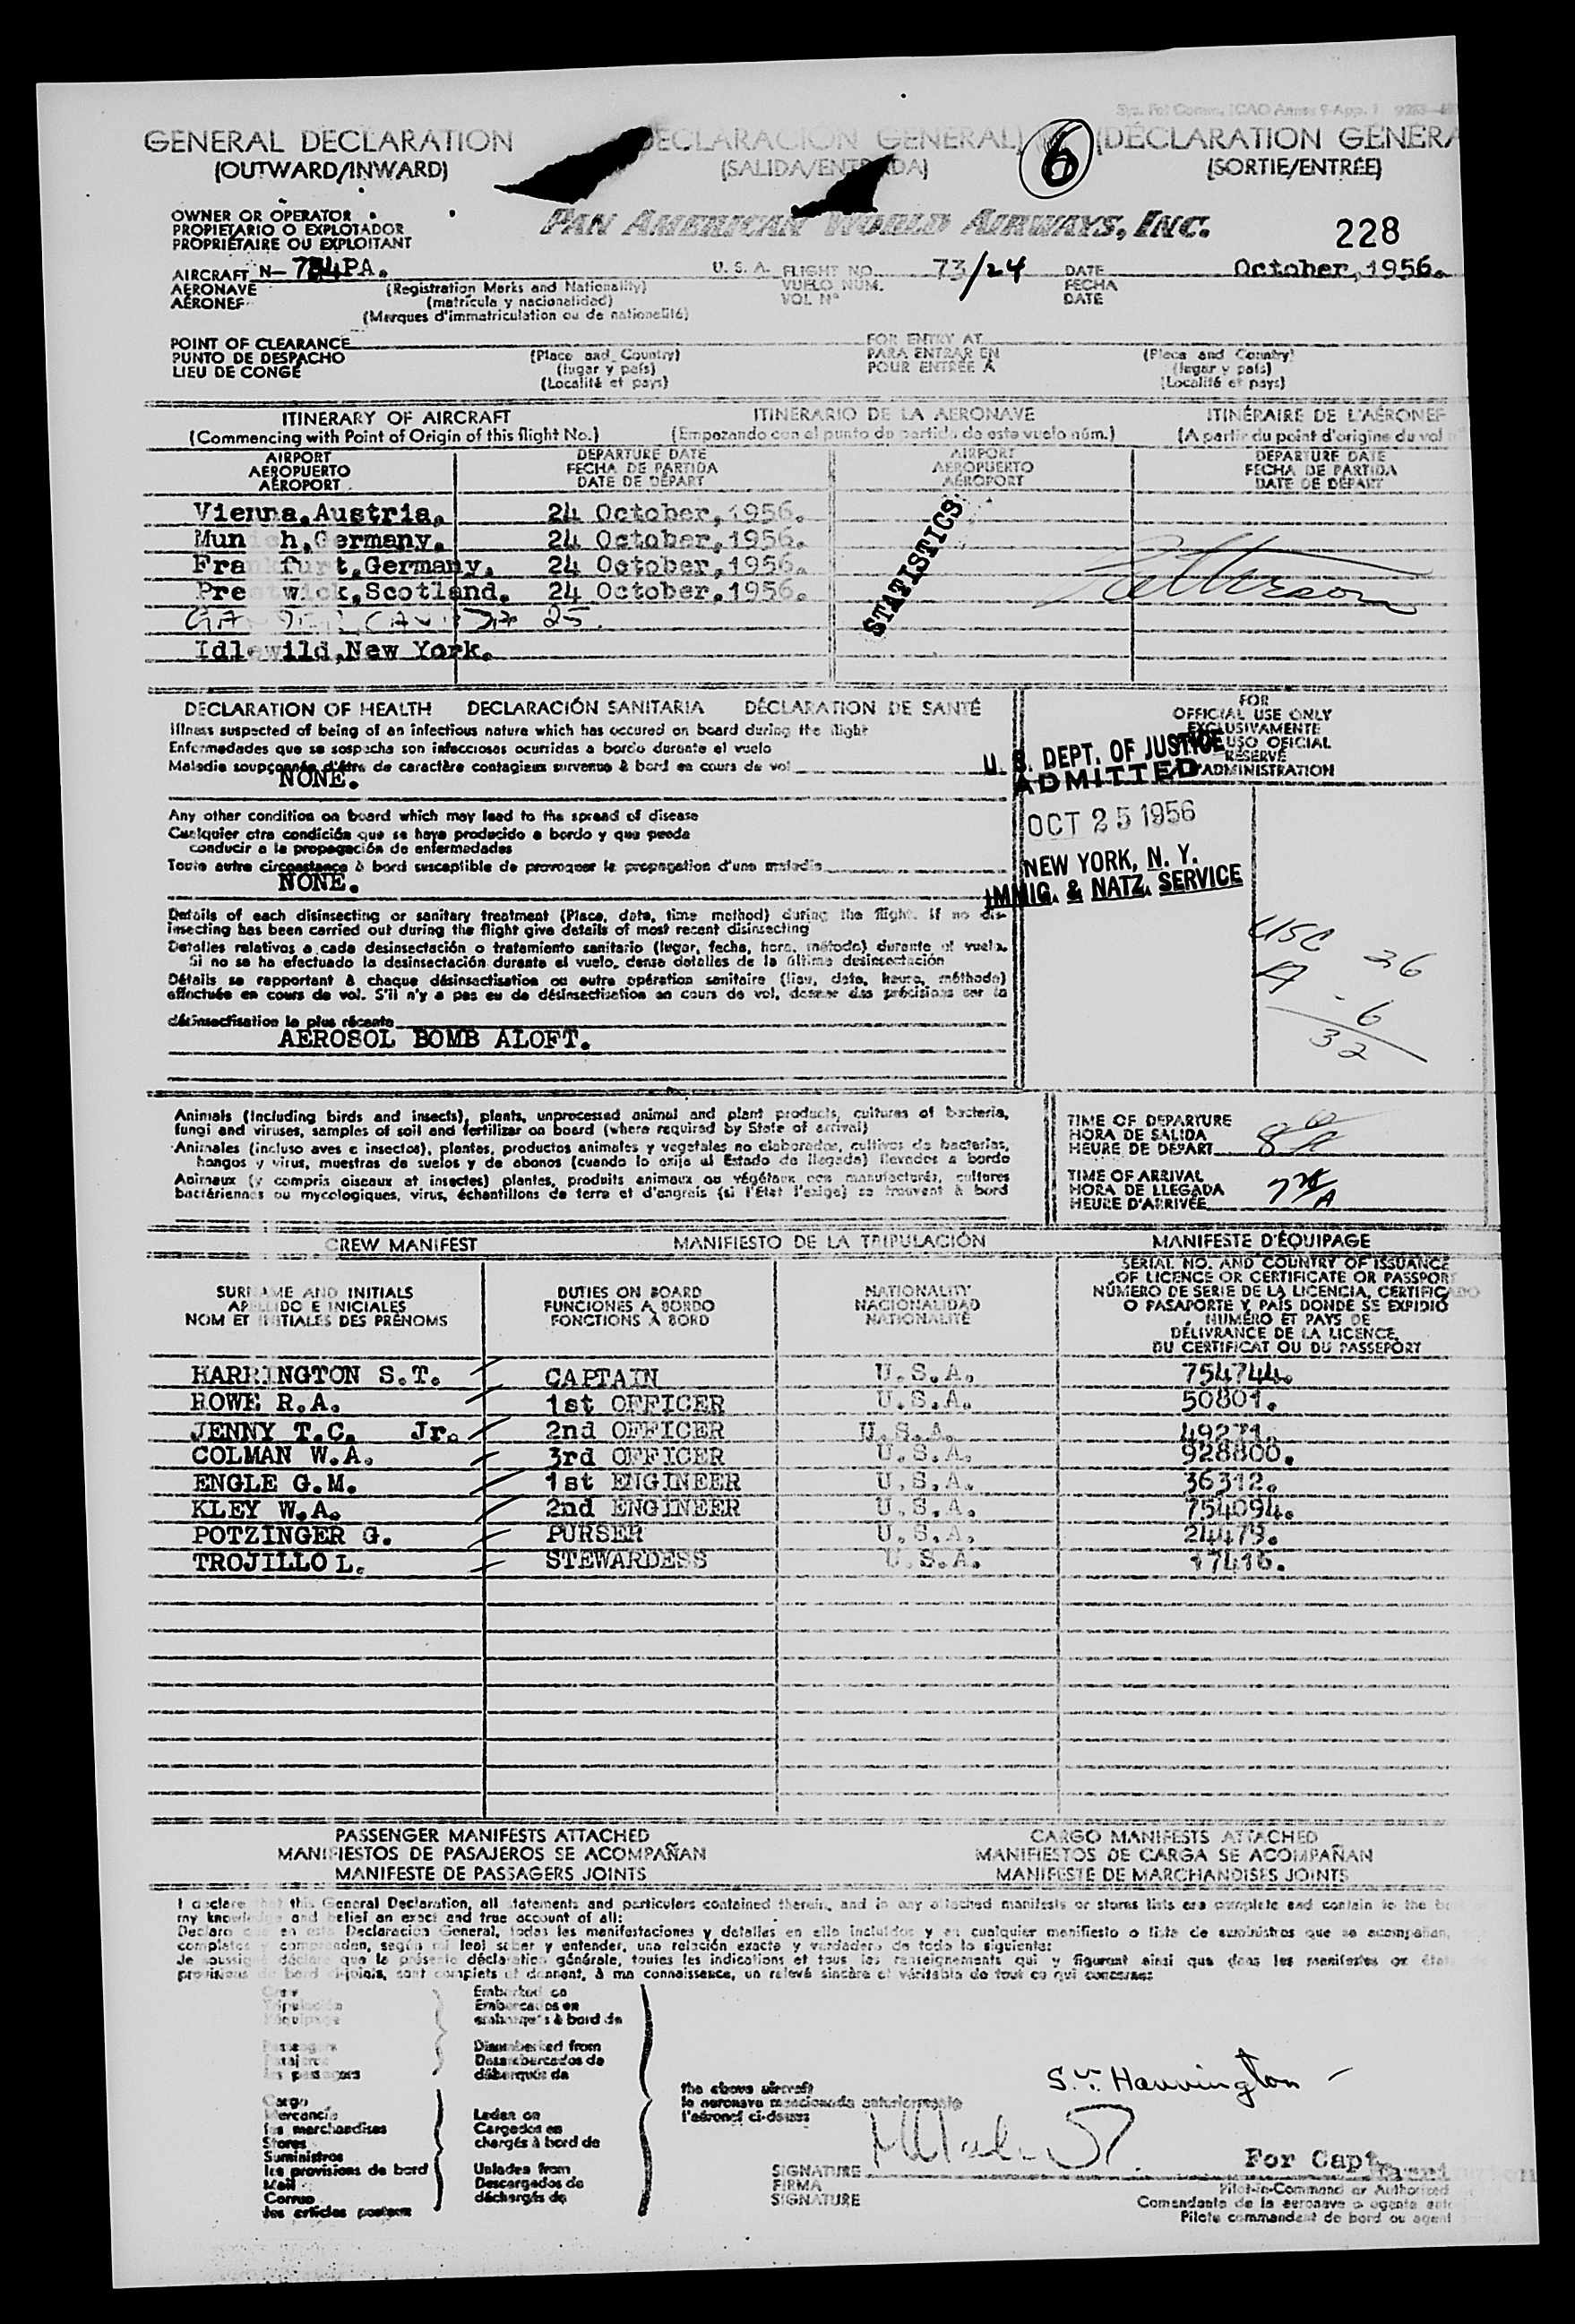 GENERAL DECLARATION (DECLARACION GENERAL) (DÉCLARATION GÉNÉRA
(OUTWARD/INWARD) (SALIDA/ENTRADA) (SORTIE/ENTRÉE)
6
OWNER OR OPERATOR
PROPIETARIO O EXPLOTADOR
PROPRIÉTAIRE OU EXPLOITANT
PAN AMERICAN WORLD AIRWAYS, INC.
228
AIRCRAFT N- PA. U. S. A. FLIGHT NO. 73/24 DATE October, 1956.
AERONAVE (Registration Marks and Nationality) VUELO NÚM. FECHA
AÉRONEF (matrícula y nacionalidad) VOL Nº DATE
(Marques d'immatriculation ou de nationalité)
POINT OF CLEARANCE FOR ENTRY AT
PUNTO DE DESPACHO (Place and Country) PARA ENTRAR EN (Place and Country)
LIEU DE CONGÉ (lugar y país) POUR ENTRÉE À (lugar y país)
(Localité et pays) (Localité et pays)
ITINERARY OF AIRCRAFT ITINERARIO DE LA AERONAVE ITINÉRAIRE DE L'AÉRONEF
(Commencing with Point of Origin of this flight No.) (Empezando con el punto de partida de este vuelo núm.) (A partir du point d'origine du vol
AIRPORT DEPARTURE DATE AIRPORT DEPARTURE DATE
AEROPUERTO FECHA DE PARTIDA AEROPUERTO FECHA DE PARTIDA
AÉROPORT DATE DE DÉPART AÉROPORT DATE DE DÉPART
Vienna, Austria, 24 October, 1956.
Mun h, Germany. 24 October, 1956.
Fra furt, Germany. 24 October, 1956.
Pre wick, Scotland. 24 October, 1956.
25.
Idlewild, New York.
STATISTICS
DECLARATION OF HEALTH DECLARACIÓN SANITARIA DÉCLARATION DE SANTÉ
Illness suspected of being of an infectious nature which has occured on board during the flight
Enfermedades que se sospecha son infecciosas ocurridas a bordo durante el vuelo
Maladie soupçonnée d'être de caractère contagieux survenue à bord en cours de vol
NONE.
Any other condition on board which may lead to the spread of disease
Cualquier otra condición que se haya producido a bordo y que pueda
conducir a la propagación de enfermedades
Toute autre circonstance à bord susceptible de provoquer la propagation d'une maladie
NONE.
Details of each disinsecting or sanitary treatment (Place, date, time method) during the flight. If no dis-
insecting has been carried out during the flight give details of most recent disinsecting
Detalles relativos a cada desinsectación o tratamiento sanitario (lugar, fecha, hora, método) durante el vuelo.
Si no se ha efectuado la desinsectación durante el vuelo, dense detalles de la última desinsectación
Détails se rapportant à chaque désinsectisation ou autre opération sanitaire (lieu, date, heure, méthode)
effectuée en cours de vol. S'il n'y a pas eu de désinsectisation en cours de vol, donner des précisions sur la
désinsectisation la plus récente
AEROSOL BOMB ALOFT.
FOR
OFFICIAL USE ONLY
EXCLUSIVAMENTE
USO OFICIAL
RÉSERVÉ
ADMINISTRATION
U. S. DEPT. OF JUSTICE
ADMITTED
OCT 25 1956
NEW YORK, N. Y.
IMMIG. & NATZ. SERVICE
USC 26
A - 6
32
Animals (Including birds and insects), plants, unprocessed animal and plant products, cultures of bacteria,
fungi and viruses, samples of soil and fertilizer on board (where required by State of arrival)
Animales (incluso aves e insectos), plantas, productos animales y vegetales no elaborados, cultivos de bacterias,
hongos y virus, muestras de suelos y de abonos (cuando lo exija el Estado de llegada) llevados a bordo
Animaux (y compris oiseaux et insectes) plantes, produits animaux ou végétaux non manufacturés, cultures
bactériennes ou mycologiques, virus, échantillons de terre et d'engrais (si l'État l'exige) se trouvent à bord
TIME OF DEPARTURE
HORA DE SALIDA
HEURE DE DÉPART
TIME OF ARRIVAL
HORA DE LLEGADA
HEURE D'ARRIVÉE
CREW MANIFEST MANIFIESTO DE LA TRIPULACIÓN MANIFESTE D'ÉQUIPAGE
SURNAME AND INITIALS DUTIES ON BOARD NATIONALITY SERIAL NO. AND COUNTRY OF ISSUANCE
APELLIDO E INICIALES FUNCIONES A BORDO NACIONALIDAD OF LICENCE OR CERTIFICATE OR PASSPORT
NOM ET INITIALES DES PRÉNOMS FONCTIONS À BORD NATIONALITÉ NÚMERO DE SERIE DE LA LICENCIA, CERTIFICADO
O PASAPORTE Y PAÍS DONDE SE EXPIDIÓ
NUMÉRO ET PAYS DE
DÉLIVRANCE DE LA LICENCE,
DU CERTIFICAT OU DU PASSEPORT
HARRINGTON S.T. CAPTAIN U.S.A. 754744.
ROWE R.A. 1st OFFICER U.S.A. 50801.
JENNY T.C. Jr. 2nd OFFICER U.S.A. 49271.
COLMAN W.A. 3rd OFFICER U.S.A. 928800.
ENGLE G.M. 1st ENGINEER U.S.A. 36312.
KLEY W.A. 2nd ENGINEER U.S.A. 754094.
POTZINGER G. PURSER U.S.A. 24479.
TROJILLO L. STEWARDESS U.S.A. 17416.
PASSENGER MANIFESTS ATTACHED CARGO MANIFESTS ATTACHED
MANIFIESTOS DE PASAJEROS SE ACOMPAÑAN MANIFIESTOS DE CARGA SE ACOMPAÑAN
MANIFESTE DE PASSAGERS JOINTS MANIFESTE DE MARCHANDISES JOINTS
I declare that this General Declaration, all statements and particulars contained therein, and in any attached manifests or stores lists are complete and contain to the be
my knowledge and belief an exact and true account of all:
Declaro que en esta Declaración General, todas las manifestaciones y detalles en ella incluidos y en cualquier manifiesto o lista de suministros que se acompañan,
completos y comprenden, según mi leal saber y entender, una relación exacta y verdadera de todo lo siguiente:
Je soussigné déclare que la présente déclaration générale, toutes les indications et tous les renseignements qui y figurent ainsi que dans les manifestes or état
provisions de bord ci-joints, sont complets et donnent, à ma connaissance, un relevé sincère et véritable de tout ce qui concerne:
Crew Embarked on
Tripulación Embarcados en
l'équipage embarqués à bord de
Passengers Disembarked from
Pasajeros Desembarcados de
les passagers débarqués de
the above aircraft
la aeronave mencionada anteriormente
l'aéronef ci-dessus
Cargo
Mercancía Laden on
les marchandises Cargados en
Stores chargés à bord de
Suministros
les provisions de bord Unladen from
Mail Descargados de
Correo déchargés de
les articles postaux
S.T. Harrington
SIGNATURE For Capt. Harrington
FIRMA Pilot-in-Command or Authorized
SIGNATURE Comandante de la aeronave o agente
Pilote commandant de bord ou agent